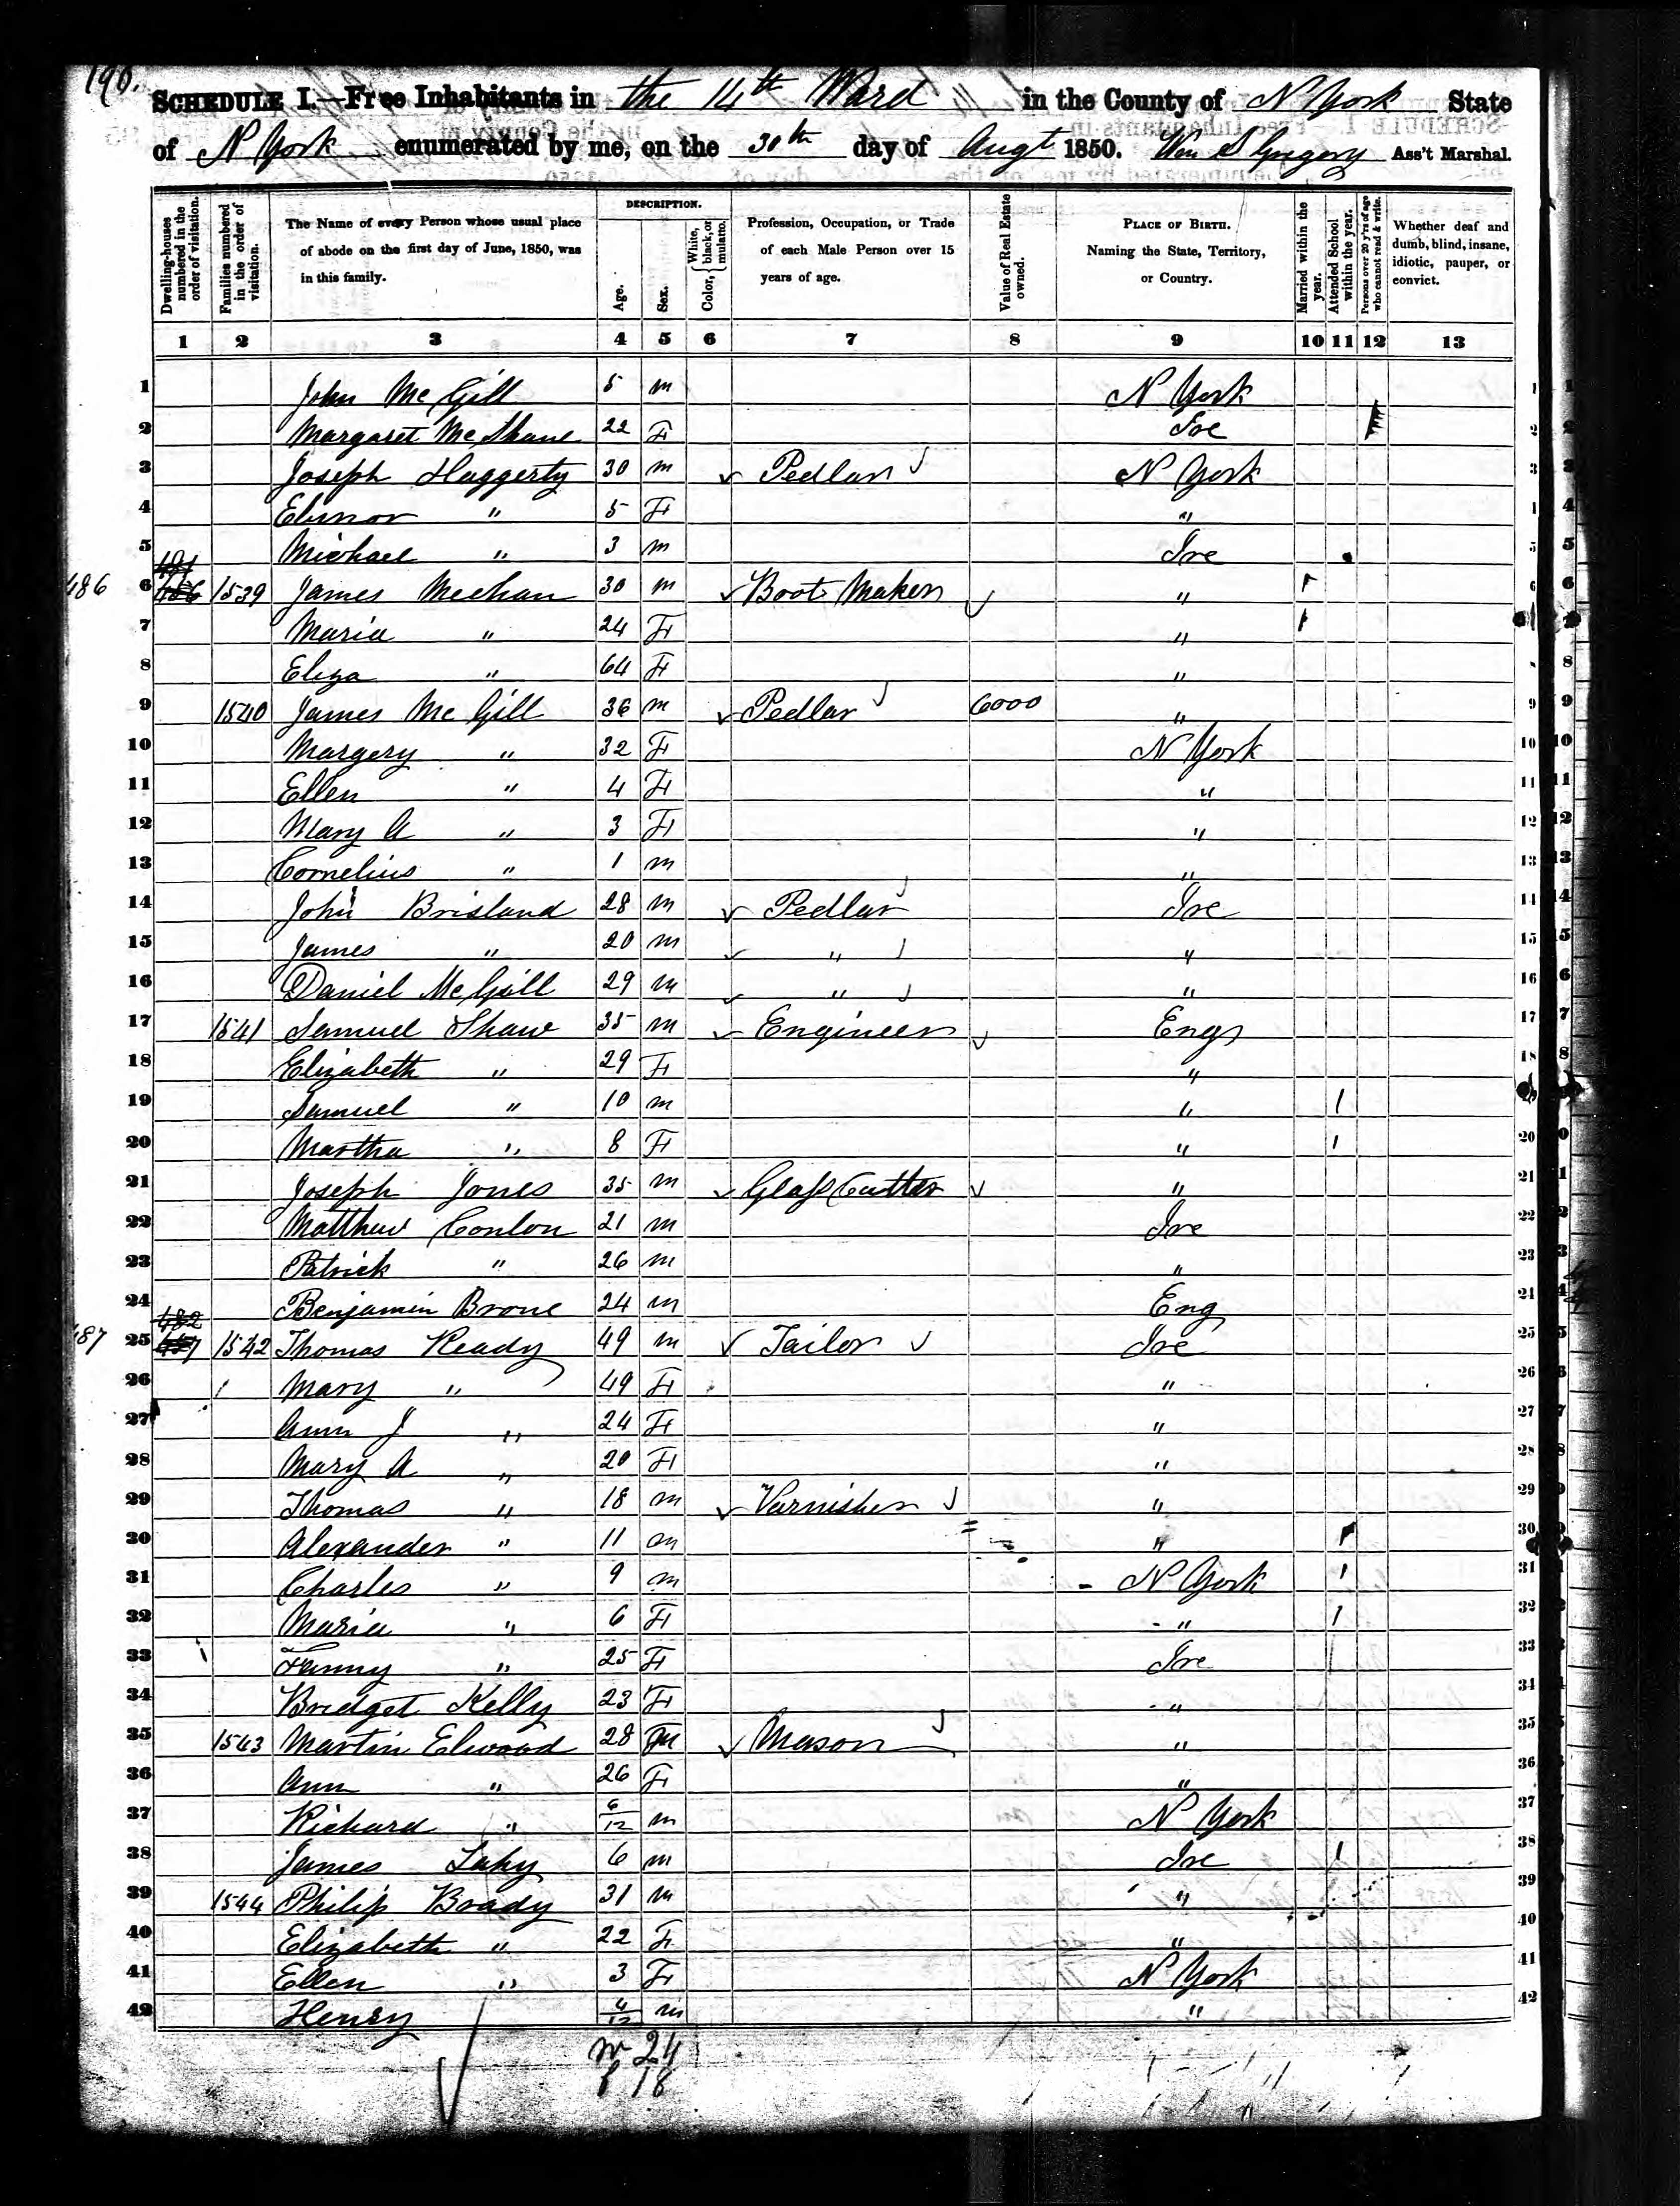 190.
SCHEDULE I.—Free Inhabitants in the 14th Ward in the County of N York State
of N York enumerated by me, on the 30th day of Augt 1850. Wm S Gregory Ass't Marshal.
Dwelling-houses numbered in the order of visitation.
Families numbered in the order of visitation.
The Name of every Person whose usual place of abode on the first day of June, 1850, was in this family.
DESCRIPTION.
Age.
Sex.
Color, { White, black, or mulatto.
Profession, Occupation, or Trade of each Male Person over 15 years of age.
Value of Real Estate owned.
PLACE OF BIRTH. Naming the State, Territory, or Country.
Married within the year.
Attended School within the year.
Persons over 20 y'rs of age who cannot read & write.
Whether deaf and dumb, blind, insane, idiotic, pauper, or convict.
1 2 3 4 5 6 7 8 9 10 11 12 13
1 John McGill 5 m N York 1
2 Margaret McShane 22 F Ire 2
3 Joseph Haggerty 30 m Pedlar N York 3
4 Elinor " 5 F " 4
5 Michael " 3 m Ire 5
481
486 6 486 1539 James Meehan 30 m Boot Maker " 6
7 Maria " 24 F "
8 Eliza " 64 F " 8
9 1540 James McGill 36 m Pedlar 6000 " 9
10 Margery " 32 F N York 10
11 Ellen " 4 F " 11
12 Mary A " 3 F " 12
13 Cornelius " 1 m " 13
14 John Brisland 28 m Pedlar Ire 14
15 James " 20 m " " 15
16 Daniel McGill 29 m " " 16
17 1541 Samuel Shaw 35 m Engineer Eng 17
18 Elizabeth " 29 F " 18
19 Samuel " 10 m " 1
20 Martha " 8 F " 1 20
21 Joseph Jones 35 m Glass Cutter " 21
22 Matthew Conlon 21 m Ire 22
23 Patrick " 26 m " 23
24 Benjamin Brone 24 m Eng 24
482
487 25 487 1542 Thomas Ready 49 m Tailor Ire 25
26 Mary " 49 F " 26
27 Ann J " 24 F " 27
28 Mary A " 20 F " 28
29 Thomas " 18 m Varnisher " 29
30 Alexander " 11 m " 1 30
31 Charles " 9 m N York 1 31
32 Maria " 6 F " 1 32
33 Fanny " 25 F Ire 33
34 Bridget Kelly 23 F " 34
35 1543 Martin Elwood 28 M Mason " 35
36 Ann " 26 F " 36
37 Richard " 6/12 m N York 37
38 James Lahy 6 m Ire 1 38
39 1544 Philip Brady 31 m " 39
40 Elizabeth " 22 F " 40
41 Ellen " 3 F N York 41
42 Henry 4/12 m " 42
m 24
f 18